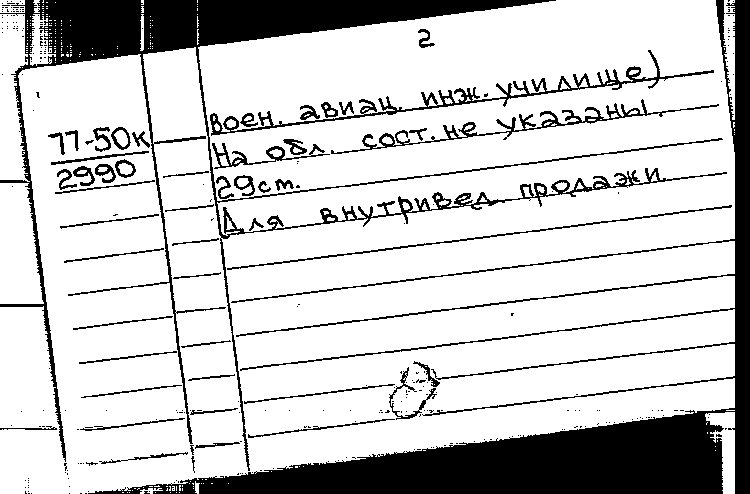 2
воен. авиац. инж. училище)
77-50к
На обл. сост. не указаны.
2990
29см.
Для внутривед. продажи